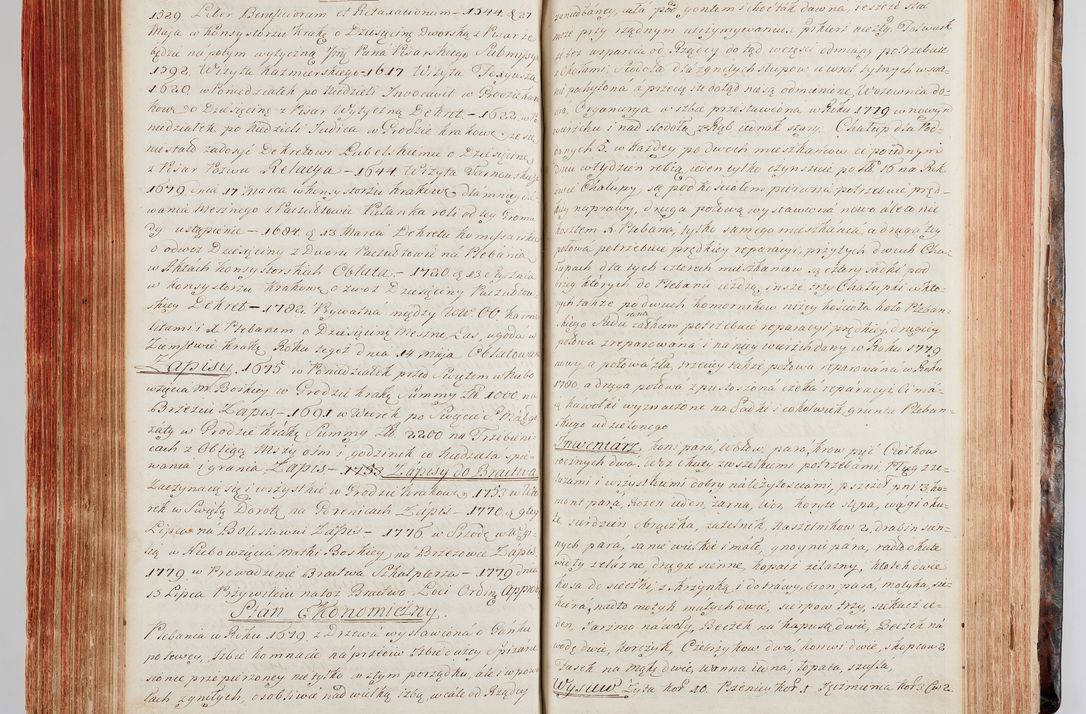 1529. Liber Beneficiorum et Retaxationum – 1544. d. 27
Maja w Konsystorzu Krakõ o Dziesięcinę Dworską z Pisar ze
będzie na potym wytyczna Jmj Pana Pisarskiego Submissya
1792. Wizyta Kazmierskiego – 1617 Wizyta Foxyusza
1620. w Poniedziałek po Niedzieli Invocavit w Grodzie Kra-
kow: o Dziesięcinę z Pisar Wytyczną Dekret – 1622. w Po
niedziałek po Niedzieli Judica w Grodzie Krakow: ze się
nie stało zadosyć Dekretowi Lubelskiemu o Dziesięcinę
z Pisar Pozwu Relacya – 1644. Wizyta Tarnowskiego
1679 dnia 17 Marca w Konsystorzu Krakow: dla mniey da-
wania Mesznego z Paczółtowic Pułanka roli od tey Groma
dy ustąpienie – 1684. d. 13 Marca Dekreta Kommissarskie
o odwoz Dziesięciny z Dworu Paczołtowic na Plebanią
w Aktach Konsystorskich Oblata – 1720. d. 13 Stycznia
w Konsystorzu Krakow: o zwoz Dziesięciny Paczołtow-
skiey Dekret – 1782. Prywatna między WW. OO. Karme
litami i X. Plebanem o Dziesięcinę Meszne, Las, ugoda w
Ziemstwie Krakõ Roku tegoż dnia 14 maja Oblatowana
Zapisy, 1675 w Poniedziałek przed Swiętem Niebo
wzięcia M. Boskiey w Grodzie Krakõ Summy Zł. 1000 na
Brzeziu Zapis – 1691 w Wtorek po Swięcie S. Małgo
rzaty w Grodzie Krakõ Summy Zł. 2200 na Trzebini
cach z Obligą Mszy ośm i godzinek co Niedziela spie-
wania i grania Zapis – 1753 Zapisy do Bractwa
Zaczynaią się i wszystkie w Grodzie Krakow: 1753 w Wto
rek w Swiętą Dorotę na Gorenicach Zapis – 1770. d. 9tego
Lipca na Bolesławiu Zapis – 1776 w Srzodę w Wigi-
lią w Niebowzięcia Matki Boskiey na Brzezowce Zapis
1779 w Prowadzenie Bractwa Szkaplerza – 1779 dnia
15 Lipca Przywileiu na toż Bractwo Loci Ordin. approb.
Stan Ekonomiczny.
Plebania w Roku 1679. z Drzewa wystawiona o Ganku
po lewey, Izbie komnacie naprzeciw Izbie duzey Spizarni
sionce przepierzoney nie tylko w złym porządku, ale i w powa
łach zgniłych, osobliwie nad wielką izbą, wcale od Rządcy
zaniedbaney, cała pod gontem i choc tak dawna, ieszcze stać
może przy rządnym utrzymywaniu, piekarni niezły. Folwark
ze bez wsparcia od Rządcy do tąd wczęści odmiany potrzebuie
z Chałami. Stodoła dla zgniłych słupow u wrot tylnych wca
le pochylona a przecię się dotąd niesą odmienione, Wozownia do-
bra. Organarya w izbie przestawiona w Roku 1779 w nowym
wierzchu i nad stodołą zrąb iednak stary. Chałup dla Pod-
danych 5. w każdey po dwoch mieszkańcow co po iednym
dniu w tydzien robią ieden tylko czynszuie po Zł. 16 na Rok
owie Chałupy, są pod Kościołem pierwsza potrzebuie pręd-
kiey naprawy, druga połową wystawiona nowo ale to nie
kosztem X. Plebana, tylko samego mieszkania a druga tey
połowa potrzebuie prędkiey reparacyi, przy tych dwoch Cha-
łupach dla tych czterech mieszkancow są cztery sadki pod
brzeg których do Plebanii ieżdżą, insze trzy Chałupki w kto
rych także po dwoch komornikow niżey Kościoła koło Pleban-
skiego Sadu 1sza całkiem potrzebuie reparacyi prędkiey, drugiey
połowa zreparowana i na niey wierzch dany w Roku 1779
nowy, a połowa zła, trzeciey także połowa reparowana w Roku
1780. a druga połowa z pustoszona czeka reparacyi Ci ma-
ią kawałki wyznaczone na Sadki i cokolwiek gruntu Pleban-
skiego udzielonego
Inwentarz, koni para, Wołow, para, krow pięć Ciołkow
rocznych dwa. Woz kuty zwszelkiemi potrzebami, Pług z że-
lazami i wszystkiemi dobry należytosciami, pszczoł pni 3, cho-
mont para, Rożen ieden, żarna, Wor, koryse sępa, wagi oku-
te, surdzien obrączka, zatesnik, Naszelnikow 2, drabin sien-
nych para, sanie wielkie i małe, gnoynie para, radło okute
widły żelazne, drugie sienne, kopacz żelazny, kłotek dwie
kosa do sieczki, z skrzynką i do trawy, bron para, motyka, sie-
kiera, nadto motyk małych dwie, sierpow trzy, siekacz ie-
den, Jarzmo na woły, Beczek na kapustę dwie, Beczek na
wodę dwie, korczyk, Czerzykow dwa, konwi dwie, skopcow 2.
Fasek na mąkę dwie, wanna iedna, łopata, szufla.
Wysiew Zyta Kor. 10. Pszenicy Kor. 1 Jęczmienia Kor. 3 Cw. 2.